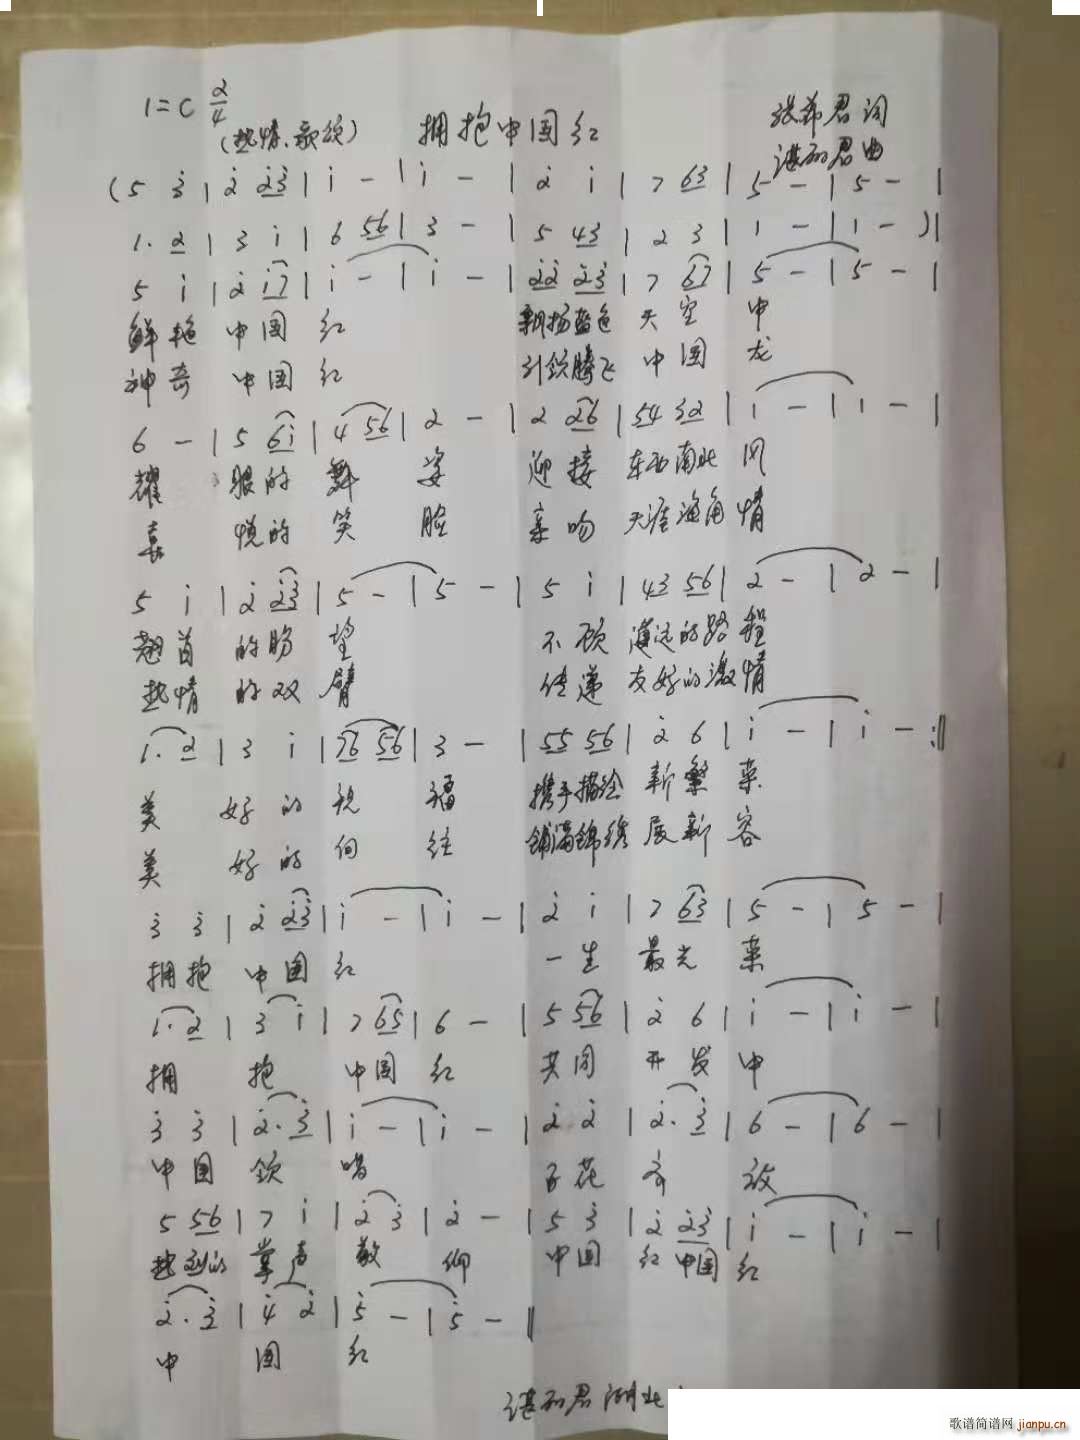 1=C 2/4
(热情、歌颂) 拥抱中国红 词
君曲
(5 3̇ | 2̇ 2̇3̇ | 1̇ - | 1̇ - | 2̇ 1̇ | 7 63 | 5 - | 5 - |
1. 2 | 3 1̇ | 6 56 | 3 - | 5 43 | 2 3 | 1 - | 1 - )|
5 1̇ | 2̇ 1̇7 | 1̇ - | 1̇ - | 2̇2̇ 2̇3̇ | 7 67 | 5 - | 5 - |
鲜艳 中国 红 飘扬蓝色 天空 中
神奇 中国 红 引领腾飞 中国 龙
6 - | 5 61̇ | 4 56 | 2 - | 2 26 | 54 32 | 1 - | 1 - |
耀 眼的 舞 姿 迎接 东西南北 风
喜 悦的 笑 脸 亲吻 天涯海角 情
5 1̇ | 2̇ 2̇3̇ | 5 - | 5 - | 5 1̇ | 43 56 | 2 - | 2 - |
翘首 的盼 望 不顾 遥远的路 程
热情 的双 臂 传递 友好的激 情
1. 2 | 3 1̇ | 76 56 | 3 - | 55 56 | 2̇ 6 | 1̇ - | 1̇ - :‖
美 好的 祝 福 携手描绘 新繁 荣
美 好的 向 往 铺满锦绣 展新 容
3̇ 3̇ | 2̇ 2̇3̇ | 1̇ - | 1̇ - | 2̇ 1̇ | 7 63 | 5 - | 5 - |
拥抱 中国 红 一生 最光 荣
1. 2 | 3 1̇ | 7 65 | 6 - | 5 56 | 2̇ 6 | 1̇ - | 1̇ - |
拥 抱 中国 红 共同 开发 中
3̇ 3̇ | 2̇. 3̇ | 1̇ - | 1̇ - | 2̇ 2̇ | 2̇. 3̇ | 6 - | 6 - |
中国 领 唱 百花 齐 放
5 56 | 7 1̇ | 2̇ 3̇ | 2̇ - | 5 3̇ | 2̇ 2̇3̇ | 1̇ - | 1̇ - |
热烈的 掌声 敬 仰 中国 红 中国 红
2̇. 3̇ | 4̇ 2̇ | 5̇ - | 5̇ - ‖
中 国 红
君 湖北
歌谱简谱网 jianpu.cn